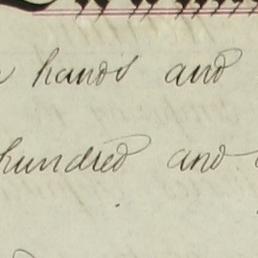 hands and
hundred and